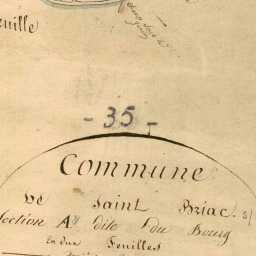 euille
- 35 -
Commune
DE Saint Briac.
Section A dite du Bourg
En deux Feuilles